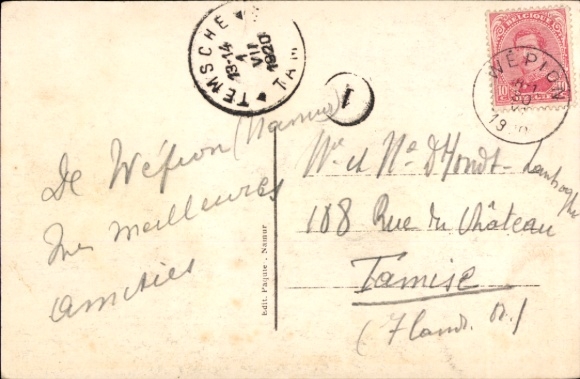 TEMSCHE
13-14
1
VII
1920
TAM
1
BELGIQUE
10
WÉPION
De Wépion (Namur)
mes meilleures
amitiés
Edit. Paquie. Namur
Mr et Me D'Hondt-
108 Rue du Château
Tamise
(Fland. Or.)